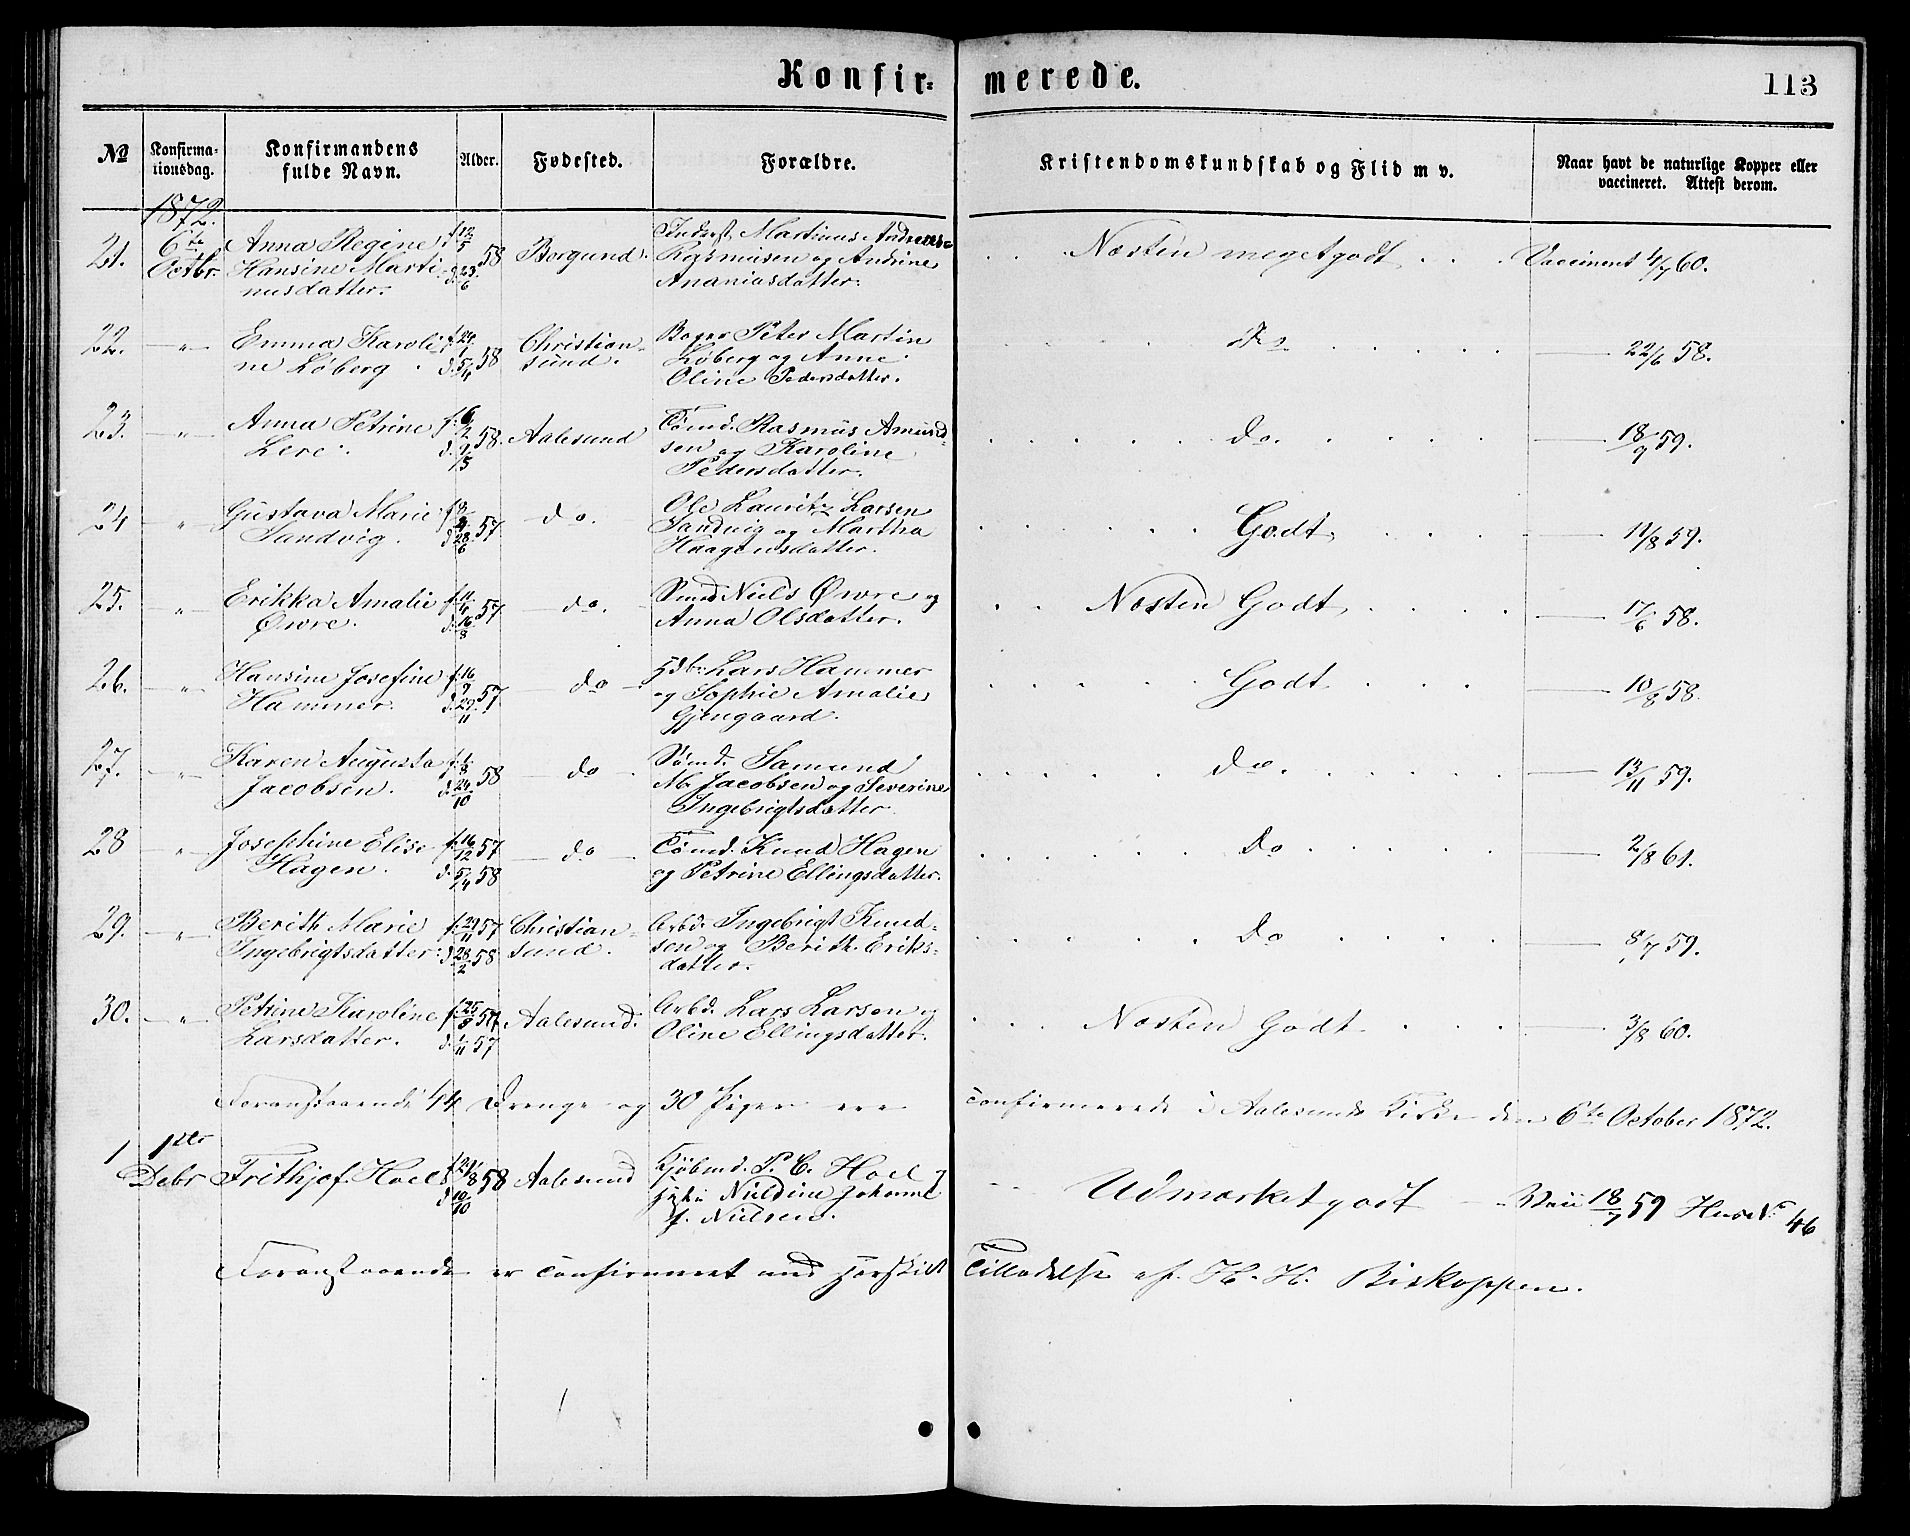 Konfir= merede.
113
№ Konfirma-tionsdag. Konfirmandens fulde Navn. Alder. Fødested. Forældre. Kristendomskundskab og Flid m v. Naar havt de naturlige Kopper eller vaccineret. Attest derom.
1872.
21. 6te Octbr. Anna Regine Hansine Martinusdatter. f. 12/5 58 d. 23/6 Borgund. Inderst Martinus Andreas Rasmusen og Andrine Ananiasdatter. Næsten meget godt Vaccineret 4/7 60.
22. " Emma Karoline Løberg. 58 d. 5/4 Christiansund. Bager Peter Martin Løberg og Anne Oline Pedersdatter. Do 22/6 58.
23. " Anna Petrine Lere. f. 6/2 58. Aalesund Tømd. Rasmus Amundsen og Karoline Pedersdatter. Do. 18/9 59.
24 " Gustava Marie Sandvig. 57 d. 28/6 do. Ole Lauritz Larsen Sandvig og Martha Haagensdatter. Godt 11/8 59.
25. " Erikka Amalie Øwre. f. 11/4 57 d. 16/8 do. Smed Niels Øwre og Anna Olsdatter. Næsten Godt 17/6 58.
26. " Hansine Josefine Hammer. f. 16/9 57 d. 29/11 do Lars Hammer og Sophie Amalie Gjengaard. Godt 10/8 58.
27. " Karen Augusta Jacobsen. f. 1/8 58 d. 24/10 do Tømd. Samund M. Jacobsen og Severine Ingebrigtsdatter. Do. 13/11 59.
28 " Josephine Elise Hagen. f. 16/12 57 d. 5/4 58 do Tømd. Knud Hagen og Petrine Ellingsdatter. Do 2/8 61.
29. " Berith Marie Ingebrigtsdatter. f. 29/11 57 d. 28/2 58 Christiansund. Arbd. Ingebrigt Knudsen og Berith Eriksdatter. Do 8/7 59.
30. " Petrine Karoline Larsdatter. f. 25/8 57 d. 1/11 57 Aalesund. Arbd. Lars Larsen og Oline Ellingsdatter. Næsten Godt 3/8 60.
Foranstaaende 44 Drenge og 30 Piger ere confirmerede i Aalesunds Kirke den 6te October 1872.
1 1ste Debr Frithjof Hoel f. 21/8 58 d. 10/10 Aalesund Kjøbmd. P. C. Hoel Nieldine Johanne f. Nielsen. Udmærket godt 18/7 59 46
Foranstaaende er confirmeret med særskilt Tilladelse af H. H. Biskoppen.